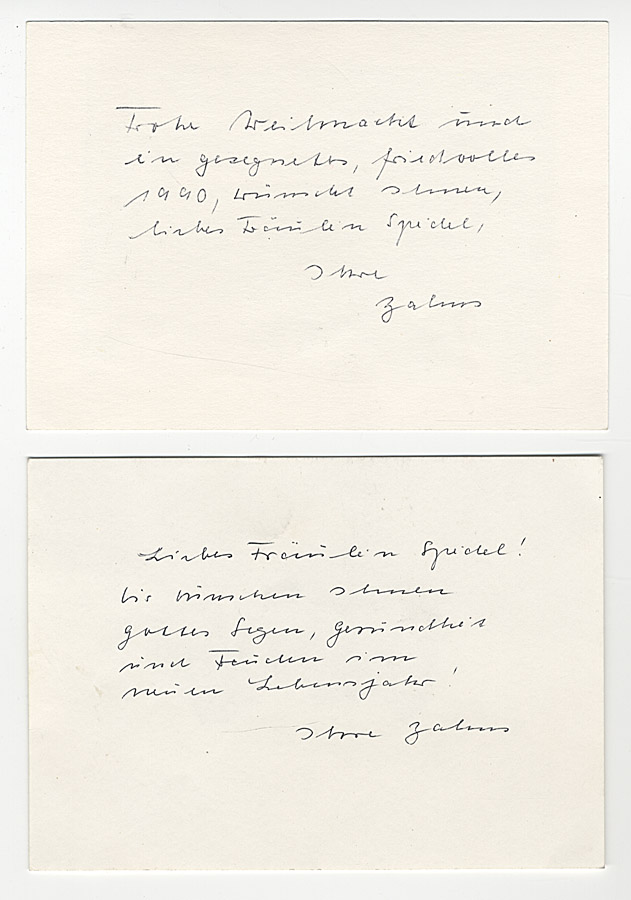 Frohe Weihnacht und
ein gesegnetes, friedvolles
1990, wünscht Ihnen,
liebes Fräulein Speidel,
Ihre
Zahns
Liebes Fräulein Speidel!
Wir wünschen Ihnen
Gottes Segen, Gesundheit
und Freuden im
neuen Lebensjahr!
Ihre Zahns